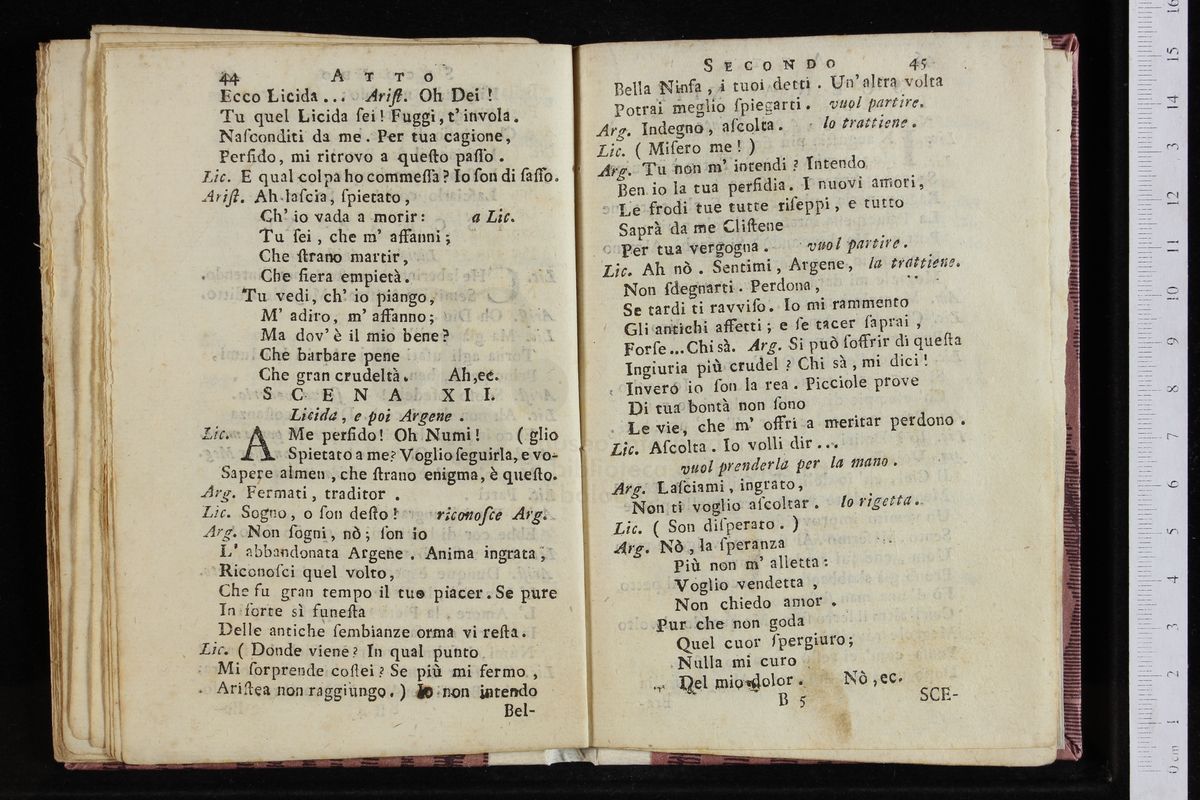 44 ATTO
Ecco Licida... Ariſt. Oh Dei!
Tu quel Licida ſei! Fuggi, t' invola.
Naſconditi da me. Per tua cagione,
Perfido, mi ritrovo a queſto paſſo.
Lic. E qual colpa ho commeſſa? Io ſon di ſaſſo.
Ariſt. Ah laſcia, ſpietato,
Ch' io vada a morir: a Lic.
Tu ſei, che m' affanni;
Che ſtrano martir,
Che fiera empietà.
Tu vedi, ch' io piango,
M' adiro, m' affanno;
Ma dov' è il mio bene?
Che barbare pene
Che gran crudeltà. Ah, ec.
SCENA XII.
Licida, e poi Argene.
Lic. A Me perfido! Oh Numi! (glio
Spietato a me? Voglio ſeguirla, e vo-
Sapere almen, che ſtrano enigma, è queſto.
Arg. Fermati, traditor.
Lic. Sogno, o ſon deſto! riconoſce Arg.
Arg. Non ſogni, nò; ſon io
L' abbandonata Argene. Anima ingrata,
Riconoſci quel volto,
Che fu gran tempo il tuo piacer. Se pure
In ſorte sì funeſta
Delle antiche ſembianze orma vi reſta.
Lic. (Donde viene? In qual punto
Mi ſorprende coſtei? Se più mi fermo,
Ariſtea non raggiungo.) Io non intendo
Bel-
SECONDO 45
Bella Ninfa, i tuoi detti. Un' altra volta
Potrai meglio ſpiegarti. vuol partire.
Arg. Indegno, aſcolta. lo trattiene.
Lic. (Miſero me!)
Arg. Tu non m' intendi? Intendo
Ben io la tua perfidia. I nuovi amori,
Le frodi tue tutte riſeppi, e tutto
Saprà da me Cliſtene
Per tua vergogna. vuol partire.
Lic. Ah nò. Sentimi, Argene, la trattiene.
Non ſdegnarti. Perdona,
Se tardi ti ravviſo. Io mi rammento
Gli antichi affetti; e ſe tacer ſaprai,
Forſe... Chi sà. Arg. Si può ſoffrir di queſta
Ingiuria più crudel? Chi sà, mi dici!
Invero io ſon la rea. Picciole prove
Di tua bontà non ſono
Le vie, che m' offri a meritar perdono.
Lic. Aſcolta. Io volli dir...
vuol prenderla per la mano.
Arg. Laſciami, ingrato,
Non ti voglio aſcoltar. lo rigetta.
Lic. (Son diſperato.)
Arg. Nò, la ſperanza
Più non m' alletta:
Voglio vendetta,
Non chiedo amor.
Pur che non goda
Quel cuor ſpergiuro;
Nulla mi curo
Del mio dolor. Nò, ec.
B 5 SCE-